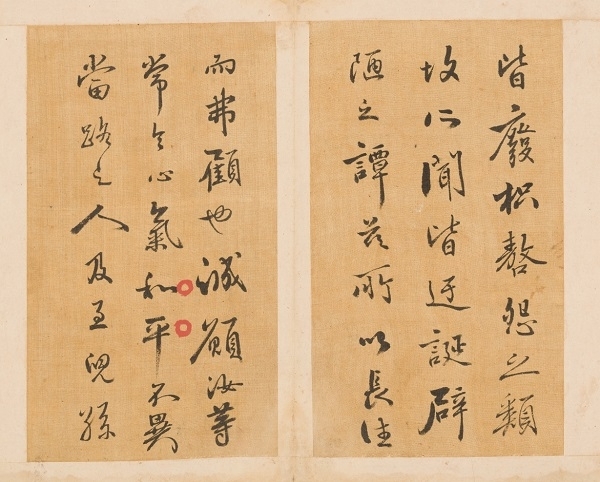 皆廢怨之類
故所聞皆迂誕辟
陋之譚茲所以長往
而弗顧也誠願汝等
常令心氣和平不異
當路之人及至兒孫